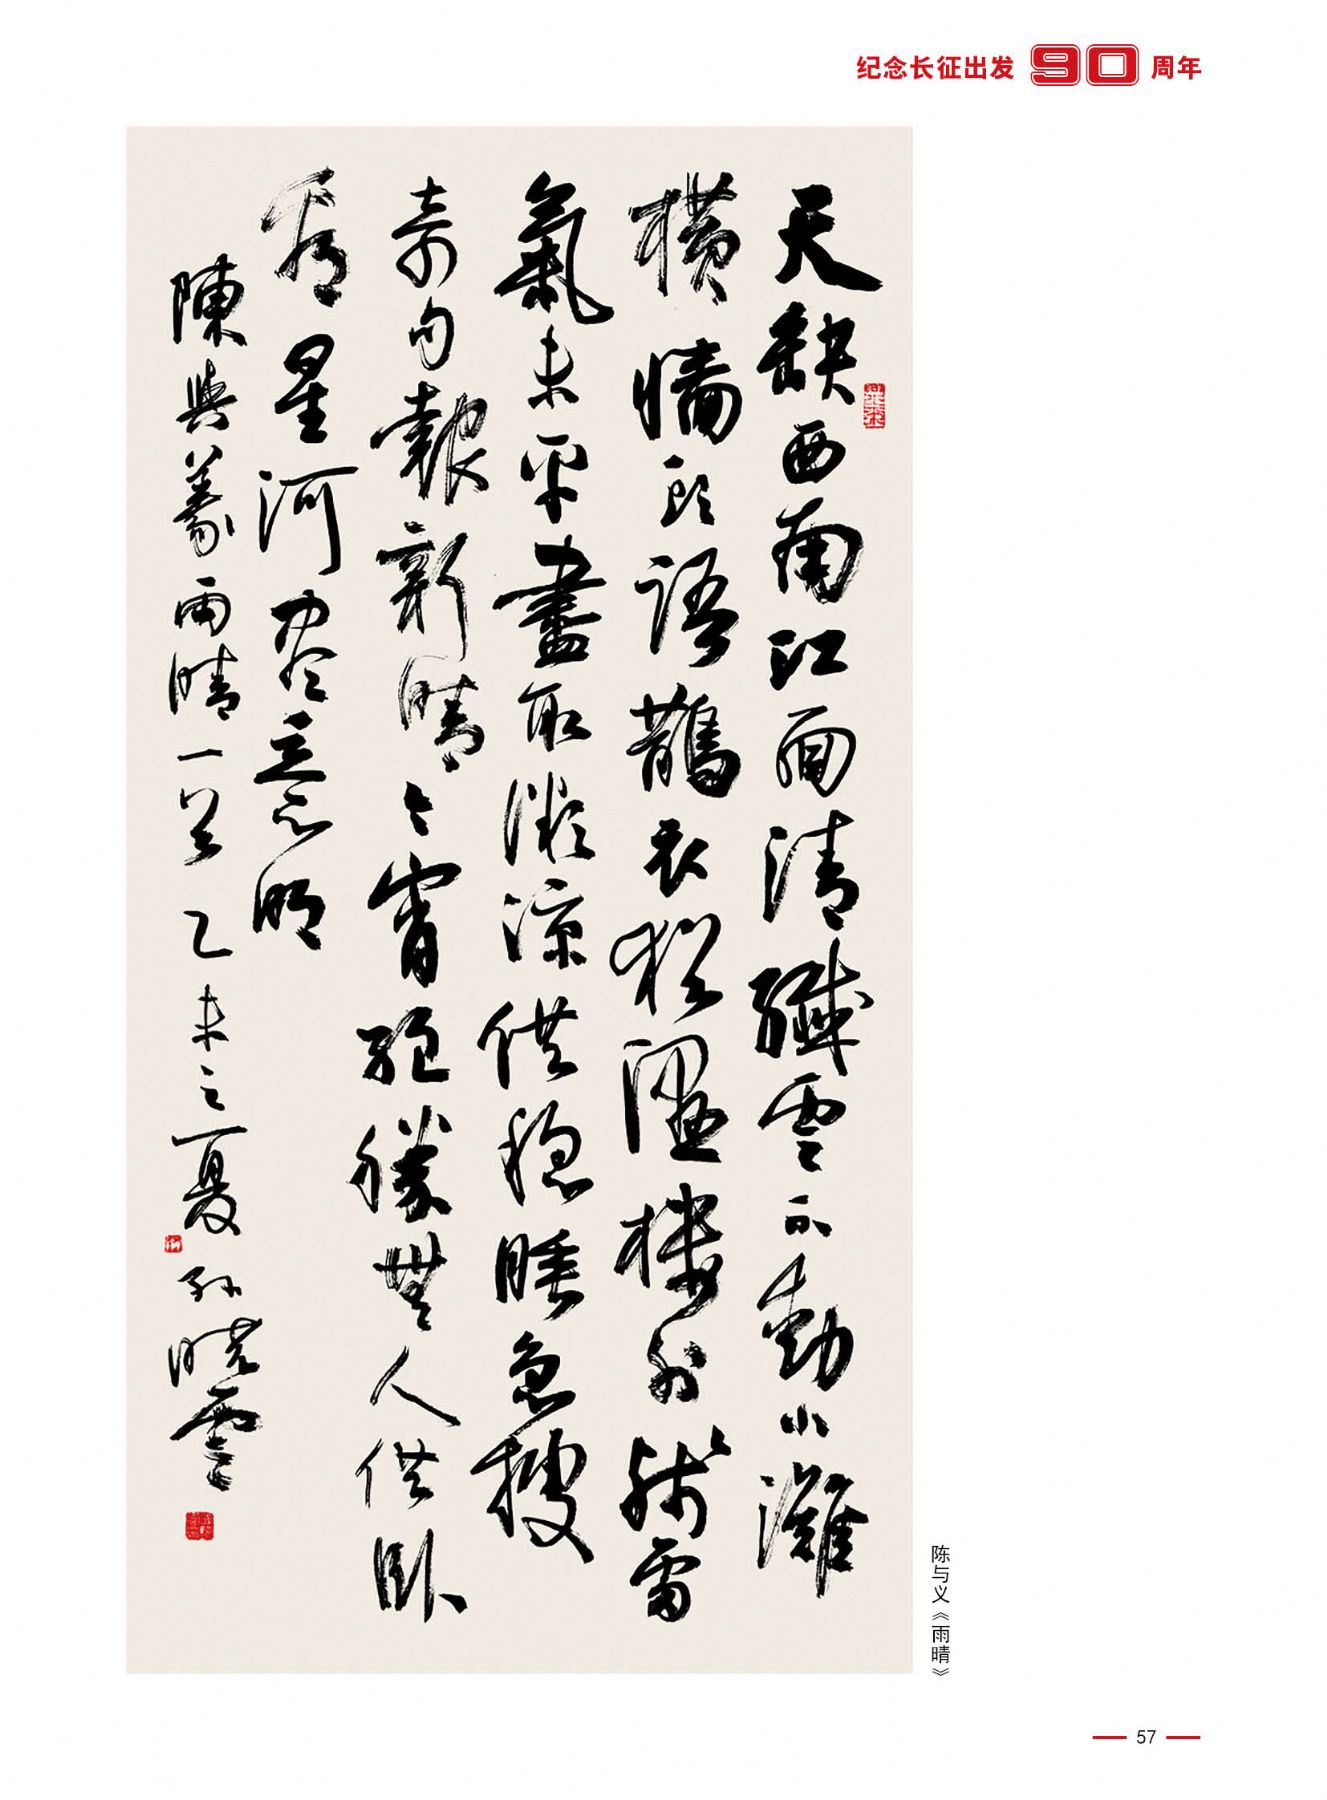 纪念长征出发90周年
天缺西南江面清纖雲不動小灘
橫牆頭語鵲衣猶濕樓外殘雷
氣未平盡取微涼供穩睡急搜
奇句報新晴今宵絕勝無人供臥
看星河尽意明
陳與義雨晴一首乙未之夏孫曉雲
陈与义《雨晴》
57